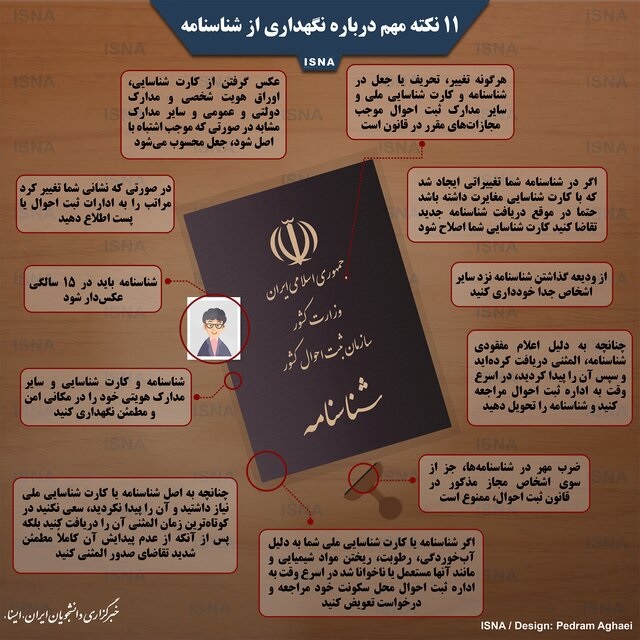 ۱۱ نکته مهم درباره نگهداری از شناسنامه
ISNA
هرگونه تغییر، تحریف یا جعل در
شناسنامه و کارت شناسایی ملی و
سایر مدارک ثبت احوال موجب
مجازات‌های مقرر در قانون است
عکس گرفتن از کارت شناسایی،
اوراق هویت شخصی و مدارک
دولتی و عمومی و سایر مدارک
مشابه در صورتی که موجب اشتباه با
اصل شود، جعل محسوب می‌شود
اگر در شناسنامه شما تغییراتی ایجاد شد
که با کارت شناسایی مغایرت داشته باشد
حتما در موقع دریافت شناسنامه جدید
تقاضا کنید کارت شناسایی شما اصلاح شود
در صورتی که نشانی شما تغییر کرد
مراتب را به ادارات ثبت احوال یا
پست اطلاع دهید
از ودیعه گذاشتن شناسنامه نزد سایر
اشخاص جدا خودداری کنید
شناسنامه باید در ۱۵ سالگی
عکس‌دار شود
جمهوری اسلامی ایران
وزارت کشور
سازمان ثبت احوال کشور
شناسنامه
چنانچه به دلیل اعلام مفقودی
شناسنامه، المثنی دریافت کرده‌اید
و سپس آن را پیدا کردید، در اسرع
وقت به اداره ثبت احوال مراجعه
کنید و شناسنامه را تحویل دهید
شناسنامه و کارت شناسایی و سایر
مدارک هویتی خود را در مکانی امن
و مطمئن نگهداری کنید
ضرب مهر در شناسنامه‌ها، جز از
سوی اشخاص مجاز مذکور در
قانون ثبت احوال، ممنوع است
چنانچه به اصل شناسنامه یا کارت شناسایی ملی
نیاز داشتید و آن را پیدا نکردید، سعی نکنید در
کوتاه‌ترین زمان المثنی آن را دریافت کنید بلکه
پس از آنکه از عدم پیدایش آن کاملا مطمئن
شدید تقاضای صدور المثنی کنید
اگر شناسنامه یا کارت شناسایی ملی شما به دلیل
آب‌خوردگی، رطوبت، ریختن مواد شیمیایی و
مانند آنها مستعمل یا ناخوانا شد در اسرع وقت به
اداره ثبت احوال محل سکونت خود مراجعه و
درخواست تعویض کنید
خبرگزاری دانشجویان ایران، ایسنا
ISNA / Design: Pedram Aghaei